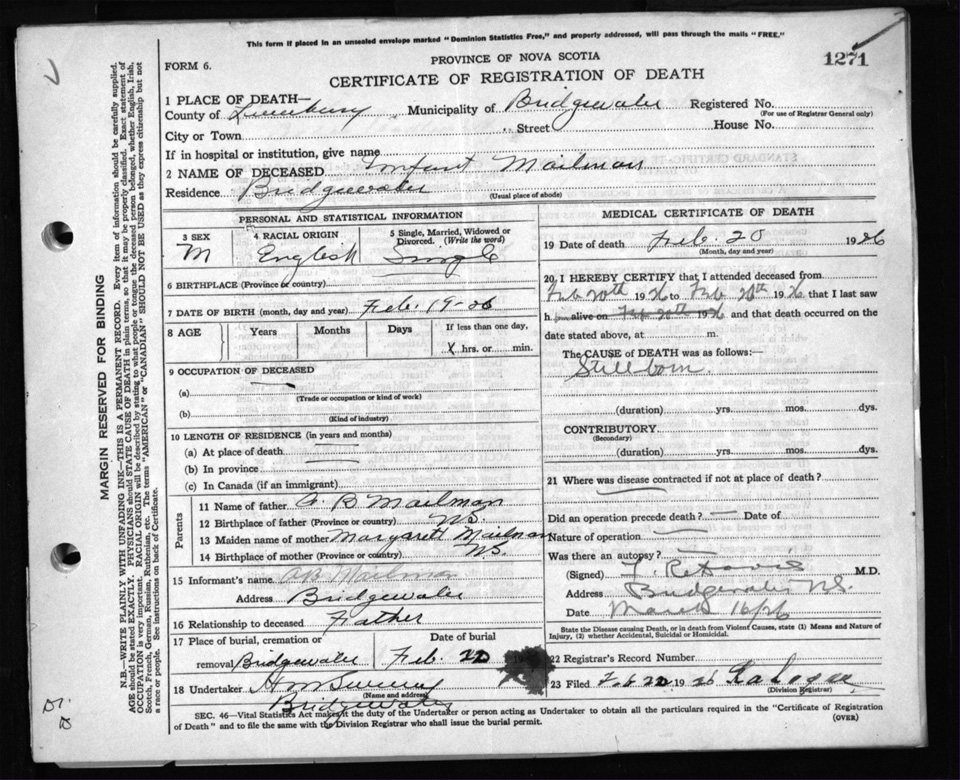 This form if placed in an unsealed envelope marked "Dominion Statistics Free," and properly addressed, will pass through the mails "FREE."
FORM 6.
PROVINCE OF NOVA SCOTIA
1271
CERTIFICATE OF REGISTRATION OF DEATH
1 PLACE OF DEATH—
County of Lunenburg Municipality of Bridgewater Registered No.
(For use of Registrar General only)
City or Town Street House No.
If in hospital or institution, give name
2 NAME OF DECEASED Infant Mailman
Residence Bridgewater
(Usual place of abode)
PERSONAL AND STATISTICAL INFORMATION
3 SEX
M
4 RACIAL ORIGIN
English
5 Single, Married, Widowed or Divorced. (Write the word)
Single
6 BIRTHPLACE (Province or country)
7 DATE OF BIRTH (month, day and year) Feb. 19-26
8 AGE Years Months Days If less than one day,
X hrs. or min.
9 OCCUPATION OF DECEASED
(a)
(Trade or occupation or kind of work)
(b)
(Kind of industry)
10 LENGTH OF RESIDENCE (in years and months)
(a) At place of death
(b) In province
(c) In Canada (if an immigrant)
Parents
11 Name of father A. B Mailman
12 Birthplace of father (Province or country) N.S.
13 Maiden name of mother Margarett Mailman
14 Birthplace of mother (Province or country) N.S.
15 Informant's name A B Mailman
Address Bridgewater
16 Relationship to deceased Father
17 Place of burial, cremation or removal Bridgewater
Date of burial
Feb. 22
18 Undertaker
(Name and address)
Bridgewater
MEDICAL CERTIFICATE OF DEATH
19 Date of death Feb. 20 1926
(Month, day and year)
20 I HEREBY CERTIFY that I attended deceased from
Feb 20th 1926 to Feb 20th 1926 that I last saw
h alive on Feb 20th 1926 and that death occurred on the
date stated above, at m.
The CAUSE OF DEATH was as follows:—
Stillborn.
(duration) yrs. mos. dys.
CONTRIBUTORY
(Secondary)
(duration) yrs. mos. dys.
21 Where was disease contracted if not at place of death?
Did an operation precede death? — Date of
Nature of operation
Was there an autopsy?
(Signed) M.D.
Address Bridgewater N.S.
Date March 16/26
State the Disease causing Death, or in death from Violent Causes, state (1) Means and Nature of Injury, (2) whether Accidental, Suicidal or Homicidal.
22 Registrar's Record Number
23 Filed Feb 22 1926
(Division Registrar)
SEC. 46—Vital Statistics Act makes it the duty of the Undertaker or person acting as Undertaker to obtain all the particulars required in the "Certificate of Registration
of Death" and to file the same with the Division Registrar who shall issue the burial permit.
(OVER)
MARGIN RESERVED FOR BINDING
N.B.—WRITE PLAINLY WITH UNFADING INK—THIS IS A PERMANENT RECORD. Every item of information should be carefully supplied.
AGE should be stated EXACTLY. PHYSICIANS should STATE CAUSE OF DEATH in plain terms, so that it may be properly classified. Exact statement of
OCCUPATION is very important. RACIAL ORIGIN will be described by stating to what people or tongue the deceased person belonged, whether English, Irish,
Scotch, French, German, Russian, Ruthenian, etc. The terms "AMERICAN" or "CANADIAN" SHOULD NOT BE USED as they express citizenship but not
a race or people. See instructions on back of Certificate.